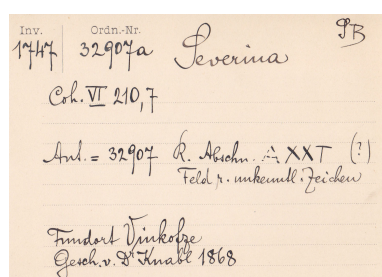 Inv. Ordn.-Nr. PB
1747 32907a Severina
Coh. VI 210,7
Ant. = 32907 R. Abschn. XXT (?)
Feld r. unkenntl. Zeichen
Fundort Vinkofze
Gesch. v. Dr Knabl 1868